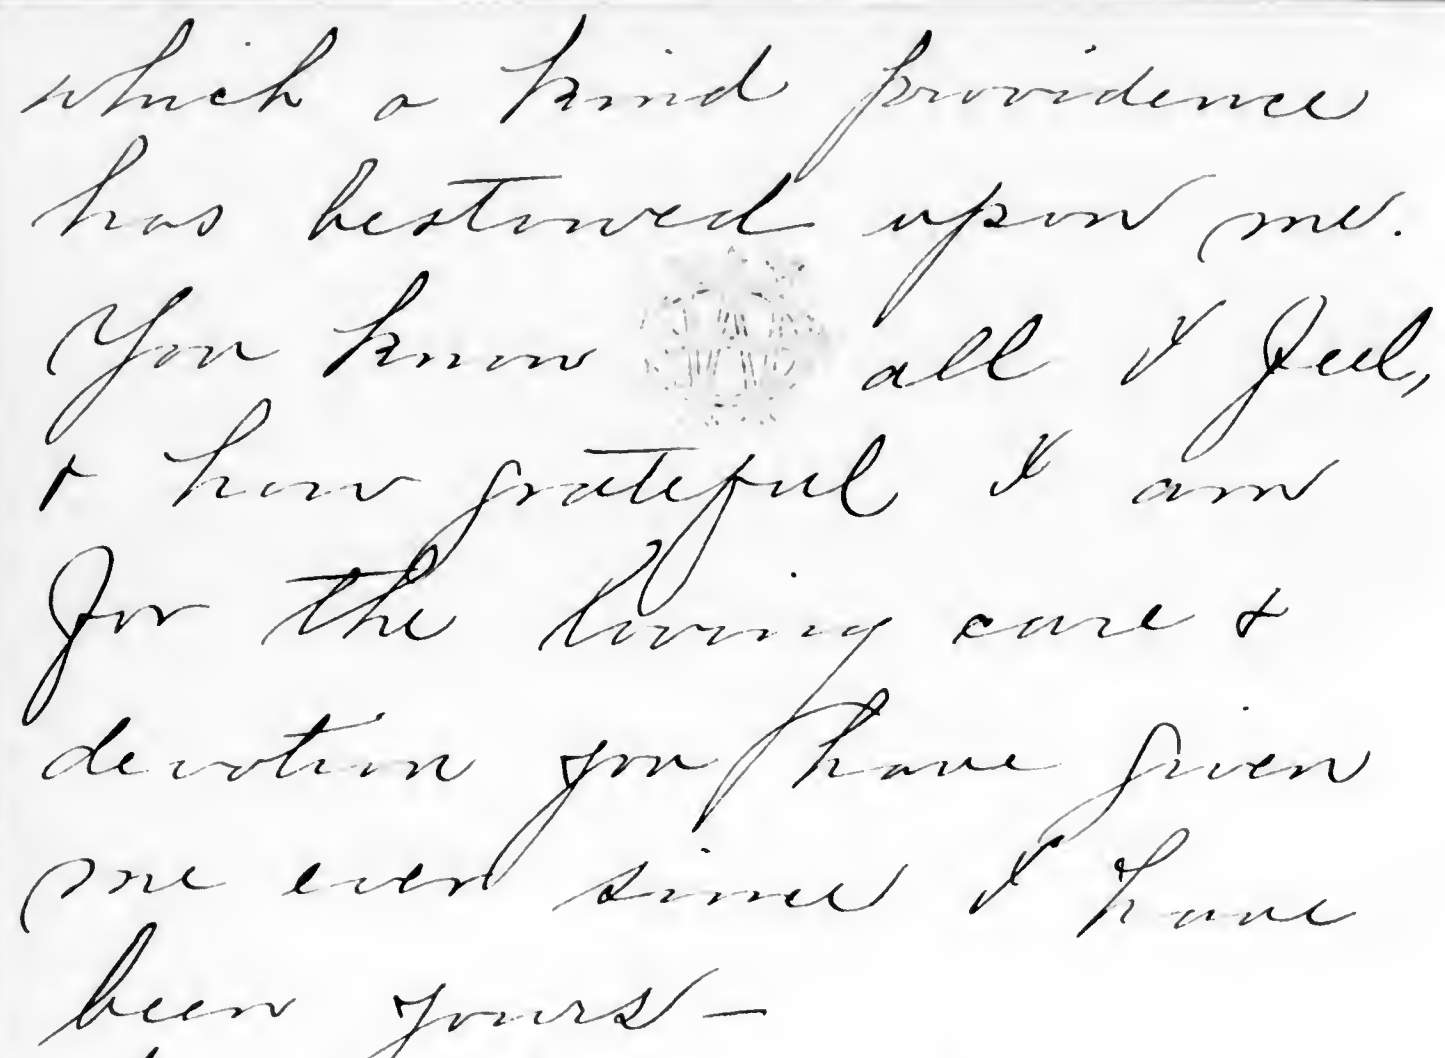 which a kind providence
has bestowed upon me.
You know all I feel,
& how grateful I am
for the loving care &
devotion you have given
me ever since I have
been yours—